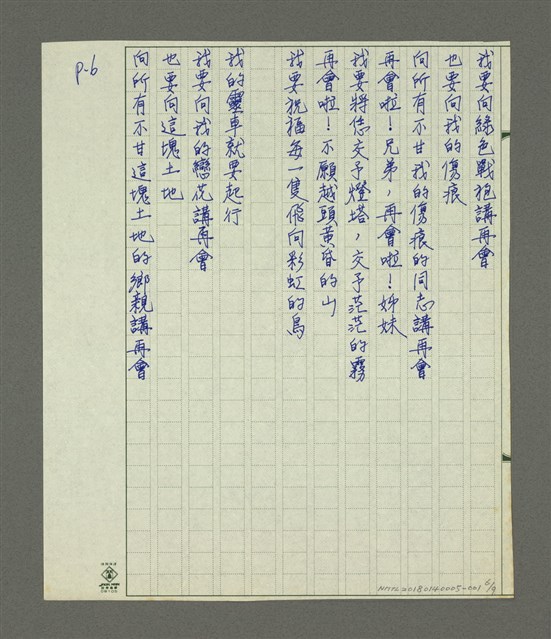 我要向綠色戰袍講再會
也要向我的傷痕
向所有不甘我的傷痕的同志講再會
再會啦！兄弟，再會啦！姊妹
我要將恁交予燈塔，交予茫茫的霧
再會啦！不願越頭黃昏的山
我要祝福每一隻飛向彩虹的鳥
我的靈車就要起行
我要向我的戀花講再會
也要向這塊土地
向所有不甘這塊土地的鄉親講再會
P-6
NMTL20180140005-001 6/9